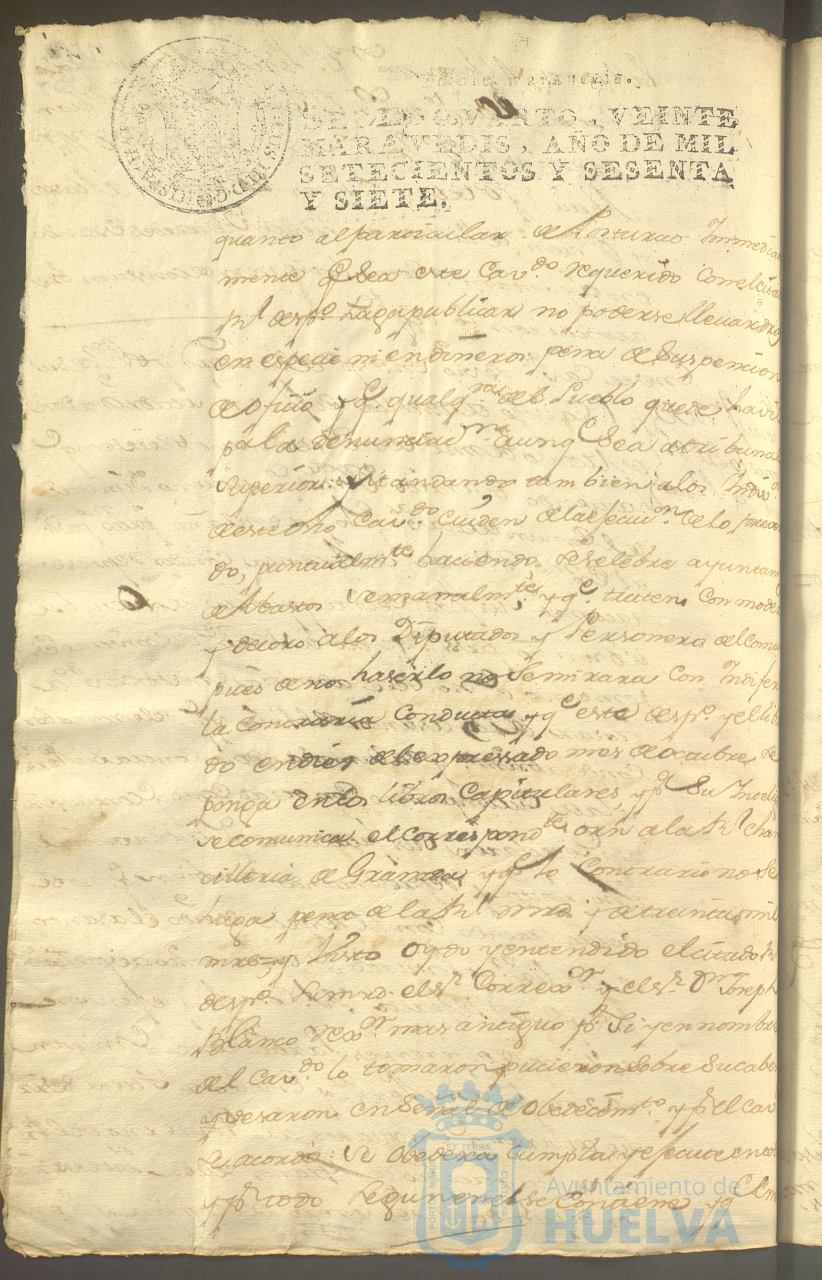 SELLO QVARTO, VEINTE
MARAVEDIS, AÑO DE MIL
SETECIENTOS Y SESENTA
Y SIETE.
quanto al particular de Posturas Immedia
mente q Sea este Cav.do requerido con el
p.l desp.o haga publicar no poderse llevar
en especie ni en dinero, pena de Suspencion
de ofizio y q qualq.ra del Pueblo quede havil
p.a la denunciac.n aunq Sea a tribunal
superior: y Mandando tambien a los Indiv.
de este dho Cav.do Cuiden de la ejecuc.n de lo preca
do, puntualm.te haciendo se selebre ayuntam
de Abastos semanalm.te, y q.e traten con mode
y decoro a los Diputados y Personero del Comu
pues de no haserlo no Se mirara Con Indifer
la Contraria Conducta y q.e este desp.o y el lib
do en dies del expresado mes de octubre se
ponga en los libros Capitulares, y p.a Su Intelig
se comunica el Correspond.te orn a la R.l Chan
cilleria de Granada y q lo Contrario no Se
haga pena de la R.l mrd y de treinta mil
mrs = y Visto Oydo y entendido el citado R
desp.o Su mrd el S.r Correx.or y el S.r D.n Joseph
Blanco Rex.or mas antiguo p.r Si y en nombre
del Cav.do lo tomaron pucieron Sobre Su cabe
y vesaron en Señal de Obedecim.to y p.r el Cav
se acordo: se Obedesca Cumpla y ejecute en to
y p.r todo Segun en el se Contiene y q
Ayuntamiento de
HUELVA